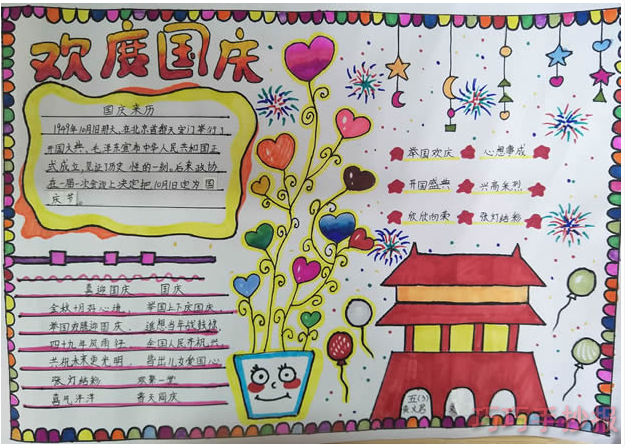 欢度国庆
国庆来历
1949年10月1日那天，在北京首都天安门举行了
开国大典，毛泽东宣布中华人民共和国正
式成立，见证了历史性的一刻，后来政协
在一届一次会议上决定把10月1日定为国
庆节。
举国欢庆 心想事成
开国盛典 兴高采烈
欣欣向荣 张灯结彩
喜迎国庆 国庆
金秋十月好心境， 举国上下庆国庆
举国欢腾迎国庆， 追想当年战鼓惊
四十九年风雨行， 全国人民齐振兴
共祝未来更光明， 皆出儿女爱国心
张灯结彩 欢聚一堂
喜气洋洋 普天同庆
五(3)
巧巧手抄报